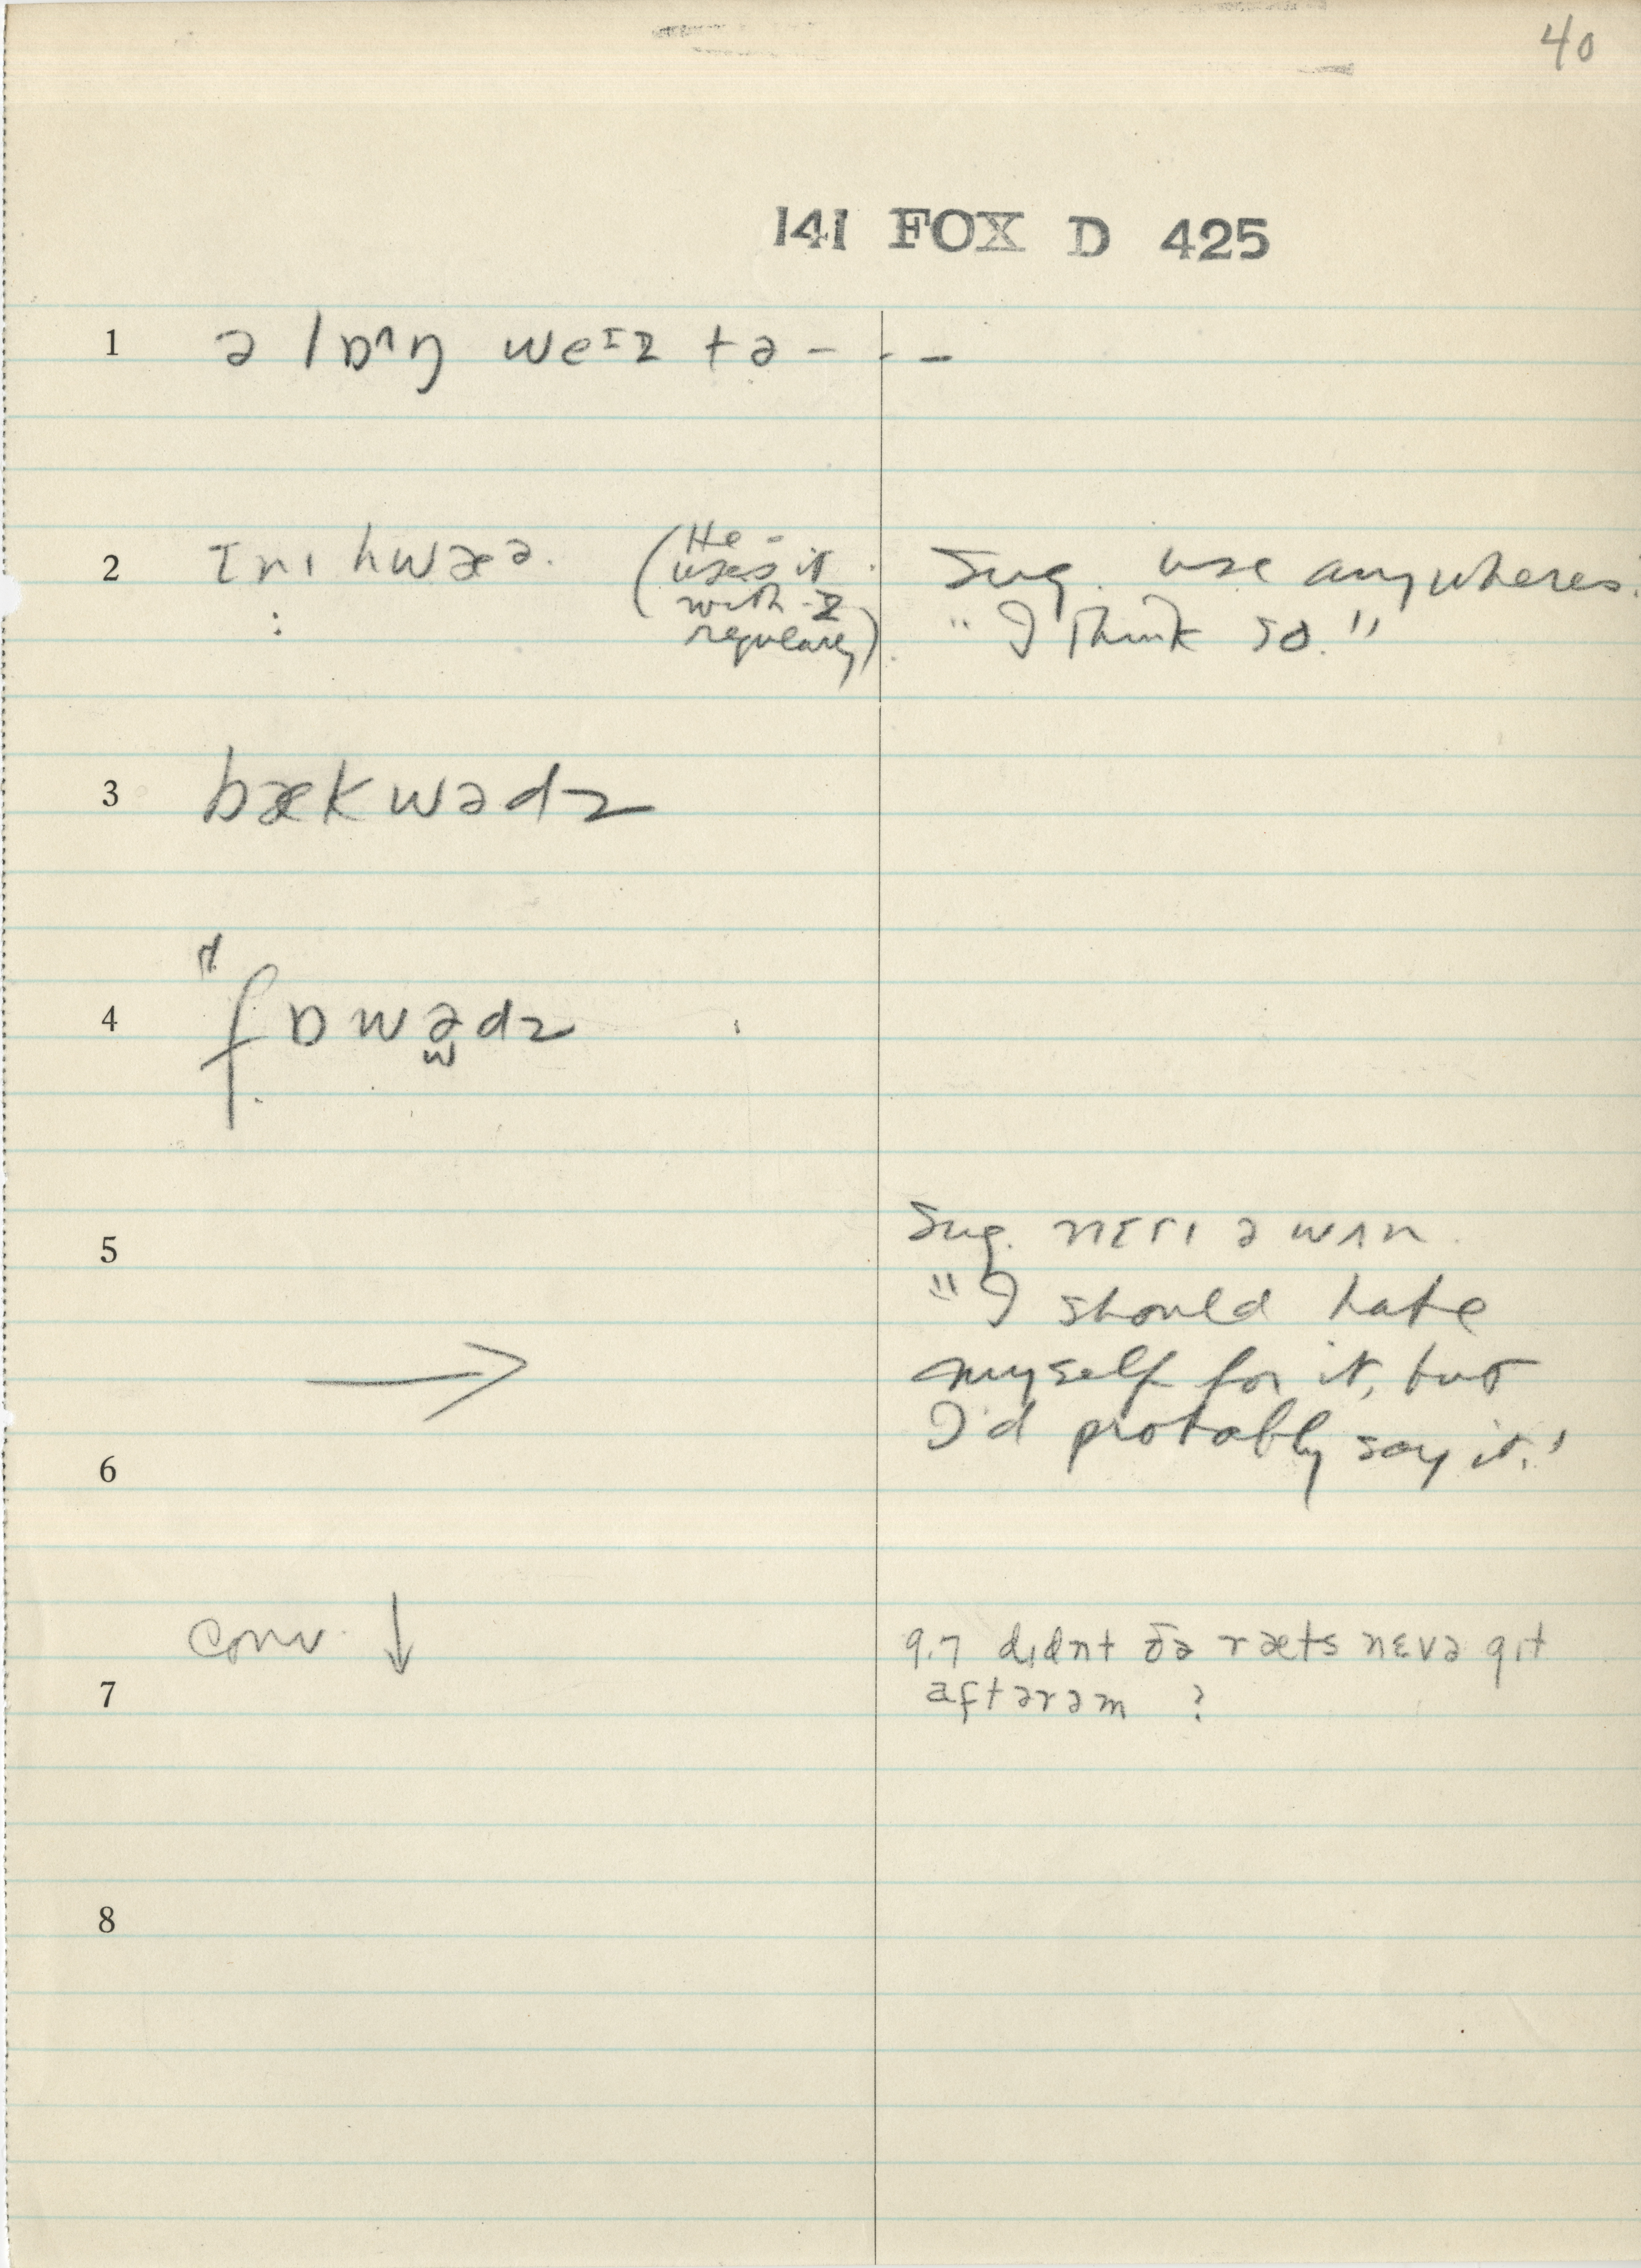 40
141 FOX D 425
1 ə lɒ^ŋ weɪz tə - - -
2 ɪnɪ hwæə. (He uses it with -z regularly) Sug. use anywheres.
"I think so."
3 bækwədz
4 fɒwədz
5 Sug. nɪɾɪ ə wʌn.
"I should hate
myself for it, but
I'd probably say it."
6
conv. ↓ 9.7 dɪdnt ðə ræts nɛvə gɪt
7 aftərəm ?
8